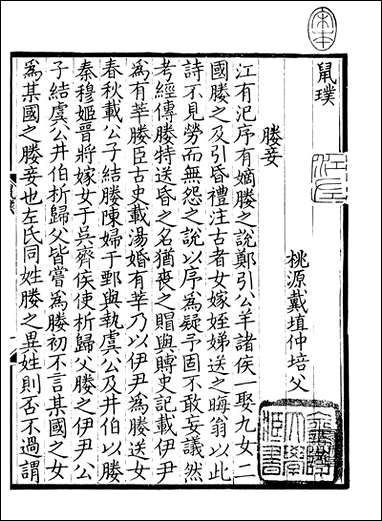 鼠璞
桃源戴埴仲培父
媵妾
江有汜序有嫡媵之說鄭引公羊諸侯一娶九女二
國媵之及引昏禮注古者女嫁姪娣送之晦翁以此
詩不見勞而無怨之說以序為疑予固不敢妄議然
考經傳媵特送昏之名猶喪之賵與賻史記載伊尹
為有莘媵臣古史載湯婚有莘乃以伊尹為媵送女
春秋載公子結媵陳婦于鄄與執虞公及井伯以媵
秦穆姬晉將嫁女于吳齊侯使析歸父媵之伊尹公
子結虞公井伯析歸父皆嘗為媵初不言某國之女
為某國之媵妾也左氏同姓媵之異姓則否不過謂